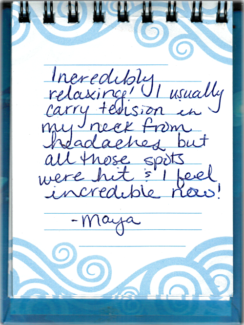 Incredibly
relaxing! I usually
carry tension in
my neck from
headaches but
all those spots
were hit & I feel
incredible now!
-Maya